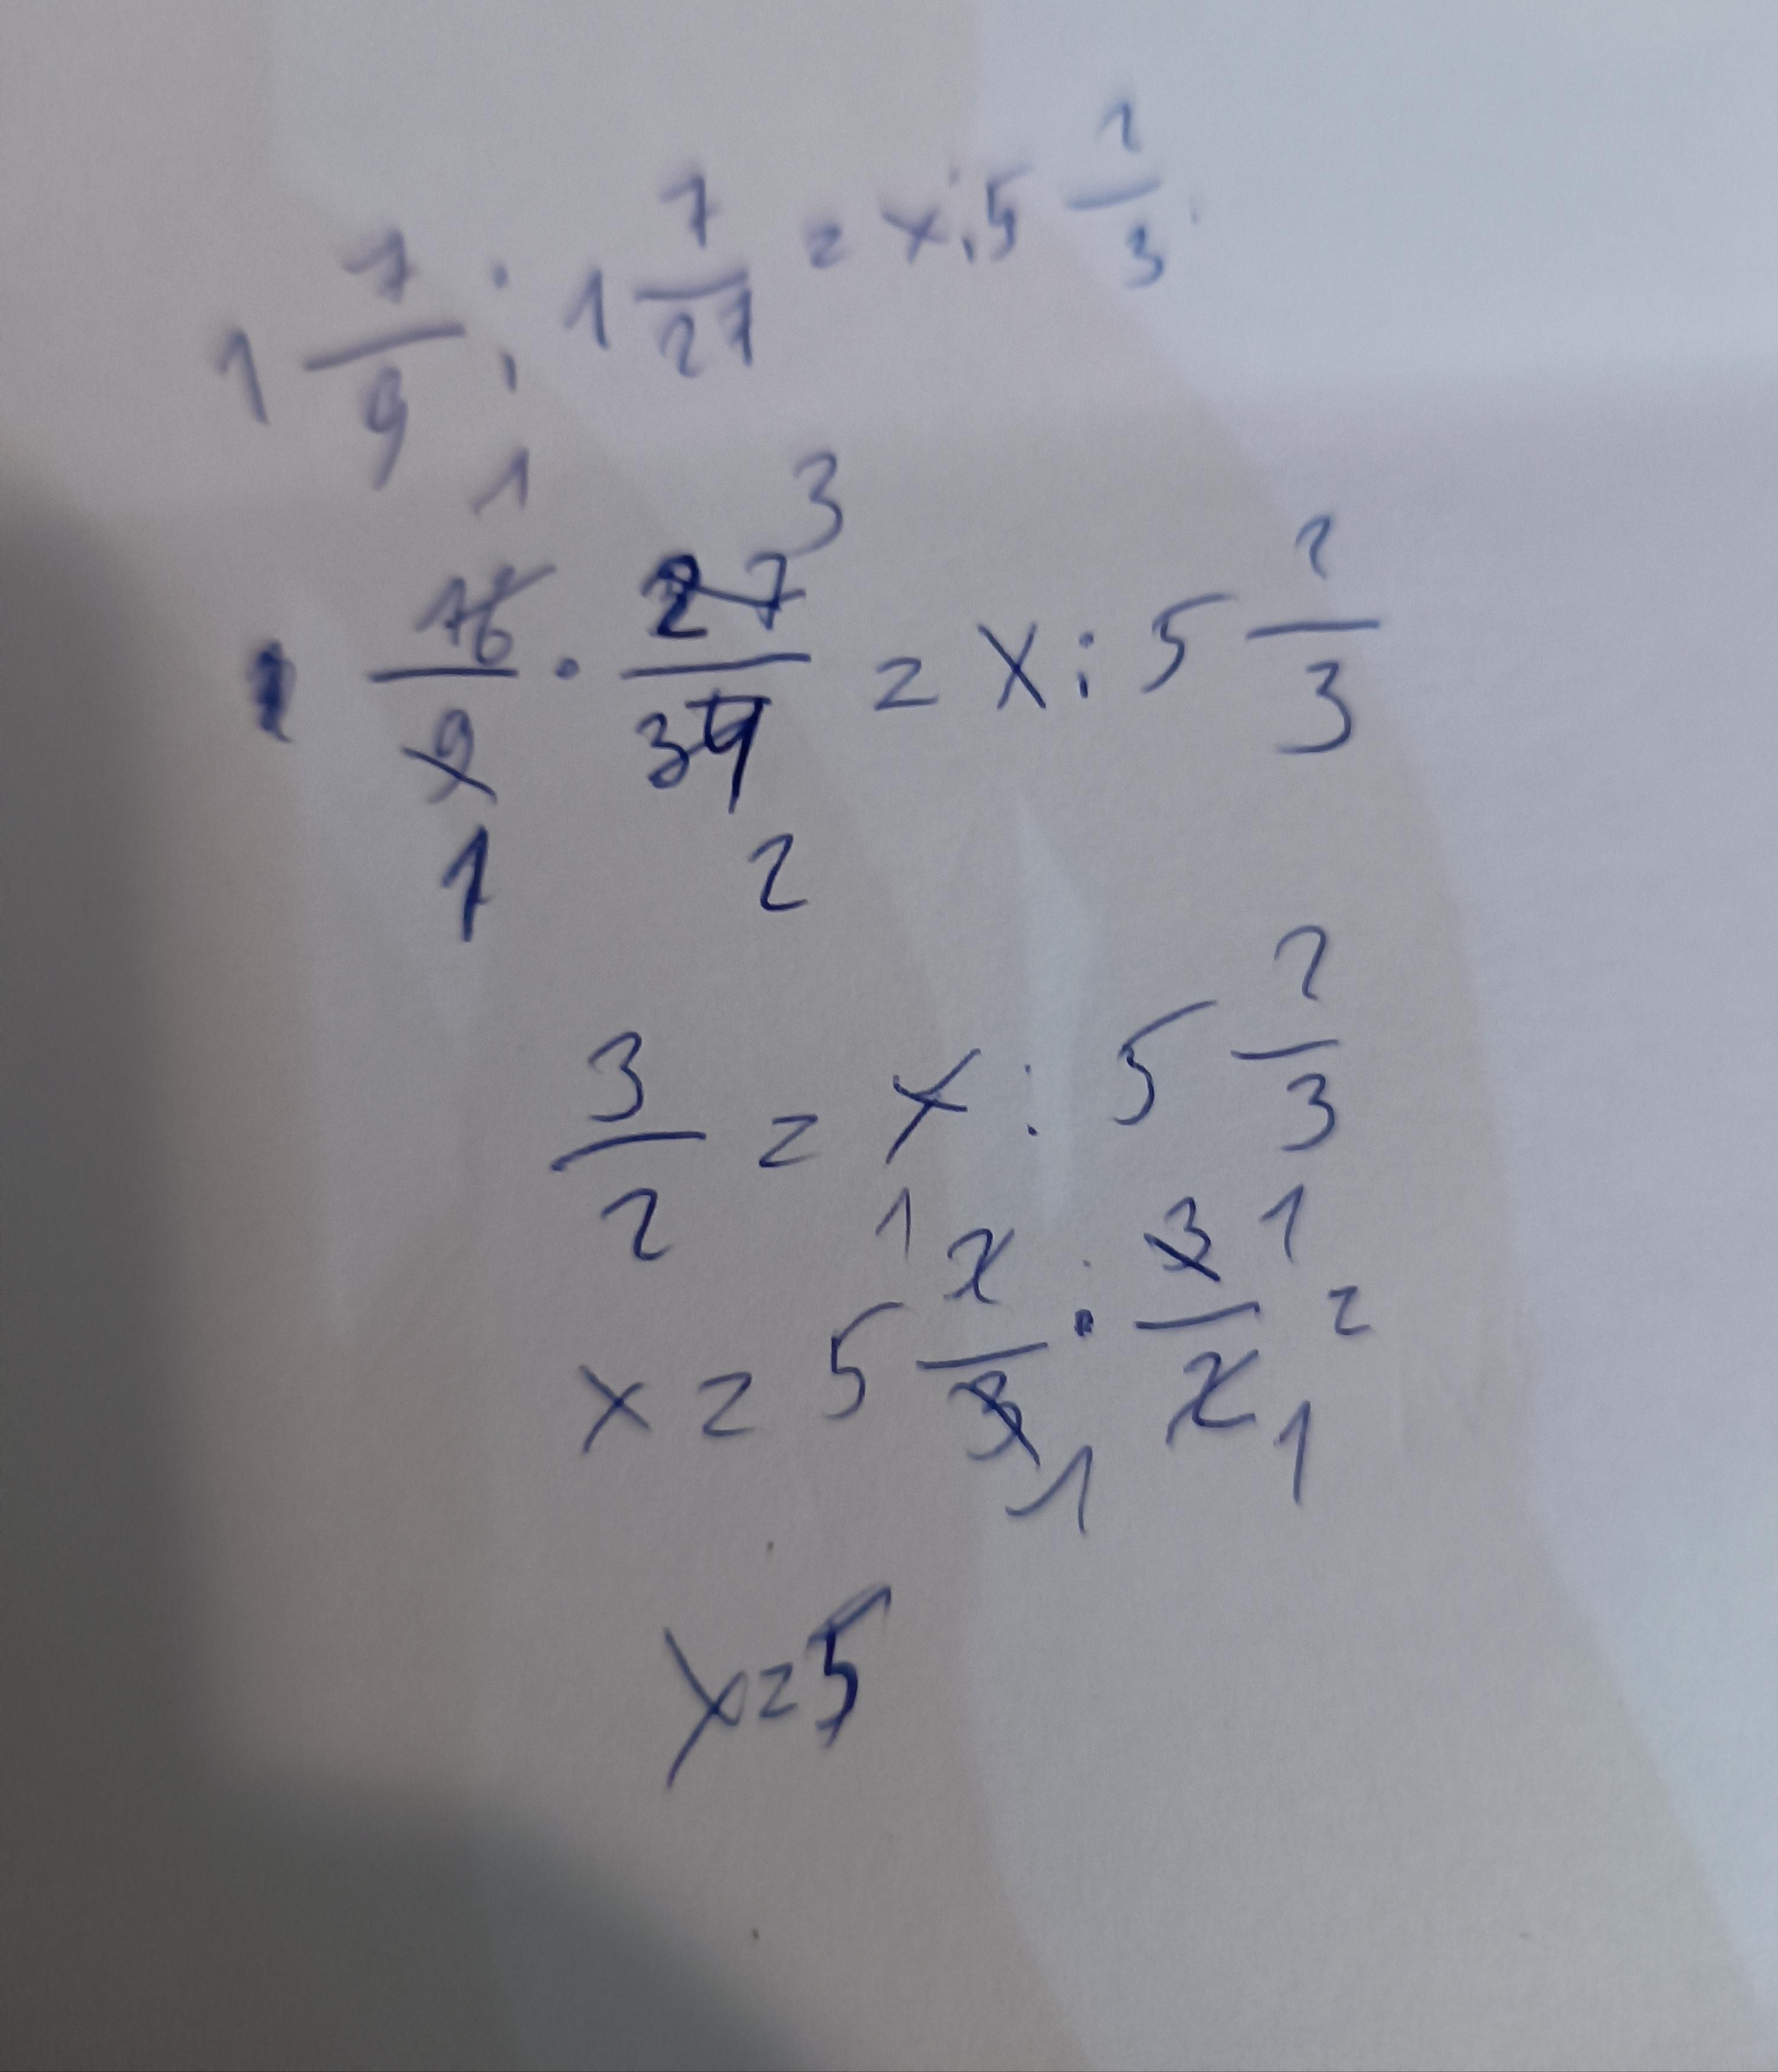 1 7/9 : 1 7/27 = x : 5 2/3
16/9 1 1 · 27/34 3 2 = x : 5 2/3
3/2 = x : 5 2/3
x = 5 2/3 1 1 · 3/2 1 1 =
x = 5